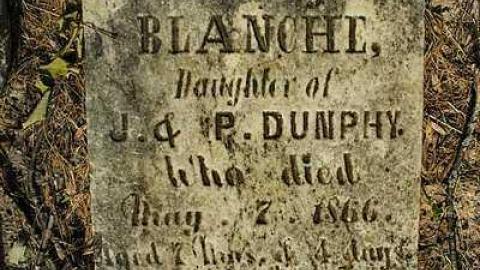 BLANCHE,
Daughter of
J. & P. DUNPHY.
Who died
May. 7. 1866.
Aged 7 & 4 days